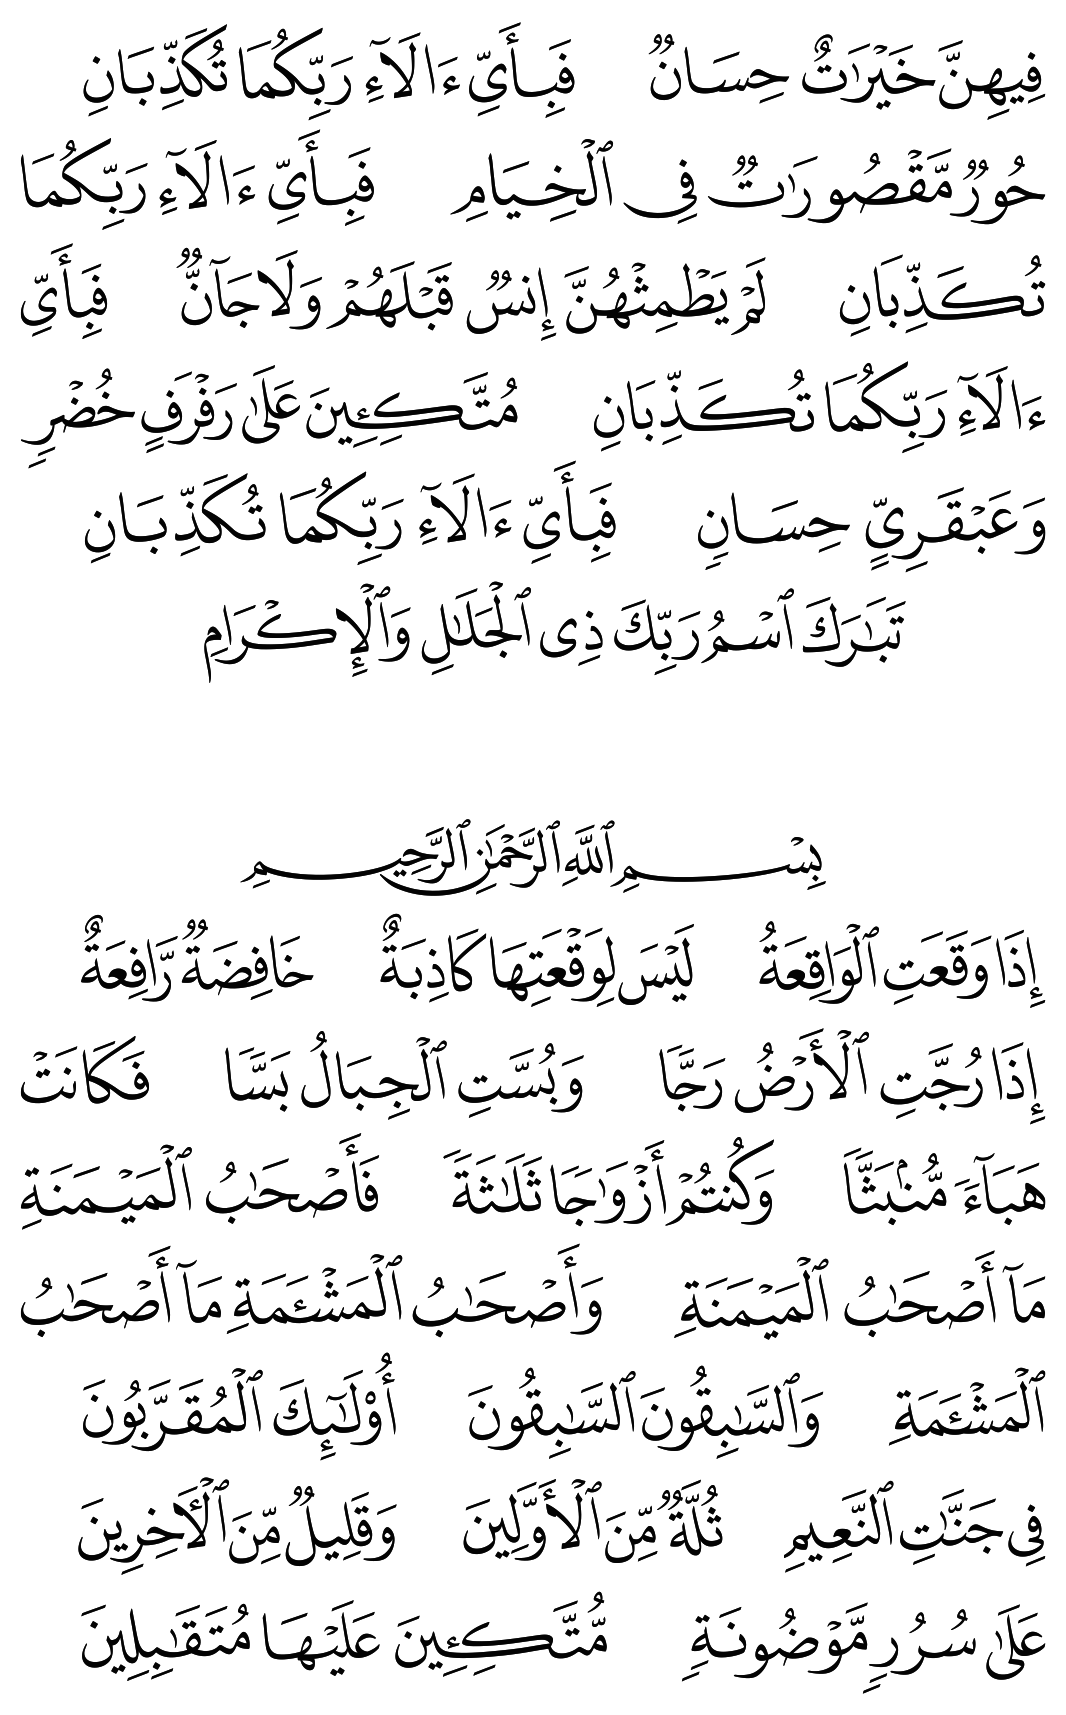 فِيهِنَّ خَيْرَٰتٌ حِسَانٌ فَبِأَيِّ ءَالَآءِ رَبِّكُمَا تُكَذِّبَانِ
حُورٌ مَّقْصُورَٰتٌ فِى ٱلْخِيَامِ فَبِأَيِّ ءَالَآءِ رَبِّكُمَا
تُكَذِّبَانِ لَمْ يَطْمِثْهُنَّ إِنسٌ قَبْلَهُمْ وَلَا جَآنٌّ فَبِأَيِّ
ءَالَآءِ رَبِّكُمَا تُكَذِّبَانِ مُتَّكِـِٔينَ عَلَىٰ رَفْرَفٍ خُضْرٍ
وَعَبْقَرِيٍّ حِسَانٍ فَبِأَيِّ ءَالَآءِ رَبِّكُمَا تُكَذِّبَانِ
تَبَٰرَكَ ٱسْمُ رَبِّكَ ذِى ٱلْجَلَٰلِ وَٱلْإِكْرَامِ
بِسْمِ ٱللَّهِ ٱلرَّحْمَٰنِ ٱلرَّحِيمِ
إِذَا وَقَعَتِ ٱلْوَاقِعَةُ لَيْسَ لِوَقْعَتِهَا كَاذِبَةٌ خَافِضَةٌ رَّافِعَةٌ
إِذَا رُجَّتِ ٱلْأَرْضُ رَجًّا وَبُسَّتِ ٱلْجِبَالُ بَسًّا فَكَانَتْ
هَبَآءً مُّنۢبَثًّا وَكُنتُمْ أَزْوَٰجًا ثَلَٰثَةً فَأَصْحَٰبُ ٱلْمَيْمَنَةِ
مَآ أَصْحَٰبُ ٱلْمَيْمَنَةِ وَأَصْحَٰبُ ٱلْمَشْـَٔمَةِ مَآ أَصْحَٰبُ
ٱلْمَشْـَٔمَةِ وَٱلسَّٰبِقُونَ ٱلسَّٰبِقُونَ أُو۟لَٰٓئِكَ ٱلْمُقَرَّبُونَ
فِى جَنَّٰتِ ٱلنَّعِيمِ ثُلَّةٌ مِّنَ ٱلْأَوَّلِينَ وَقَلِيلٌ مِّنَ ٱلْـَٔاخِرِينَ
عَلَىٰ سُرُرٍ مَّوْضُونَةٍ مُّتَّكِـِٔينَ عَلَيْهَا مُتَقَٰبِلِينَ